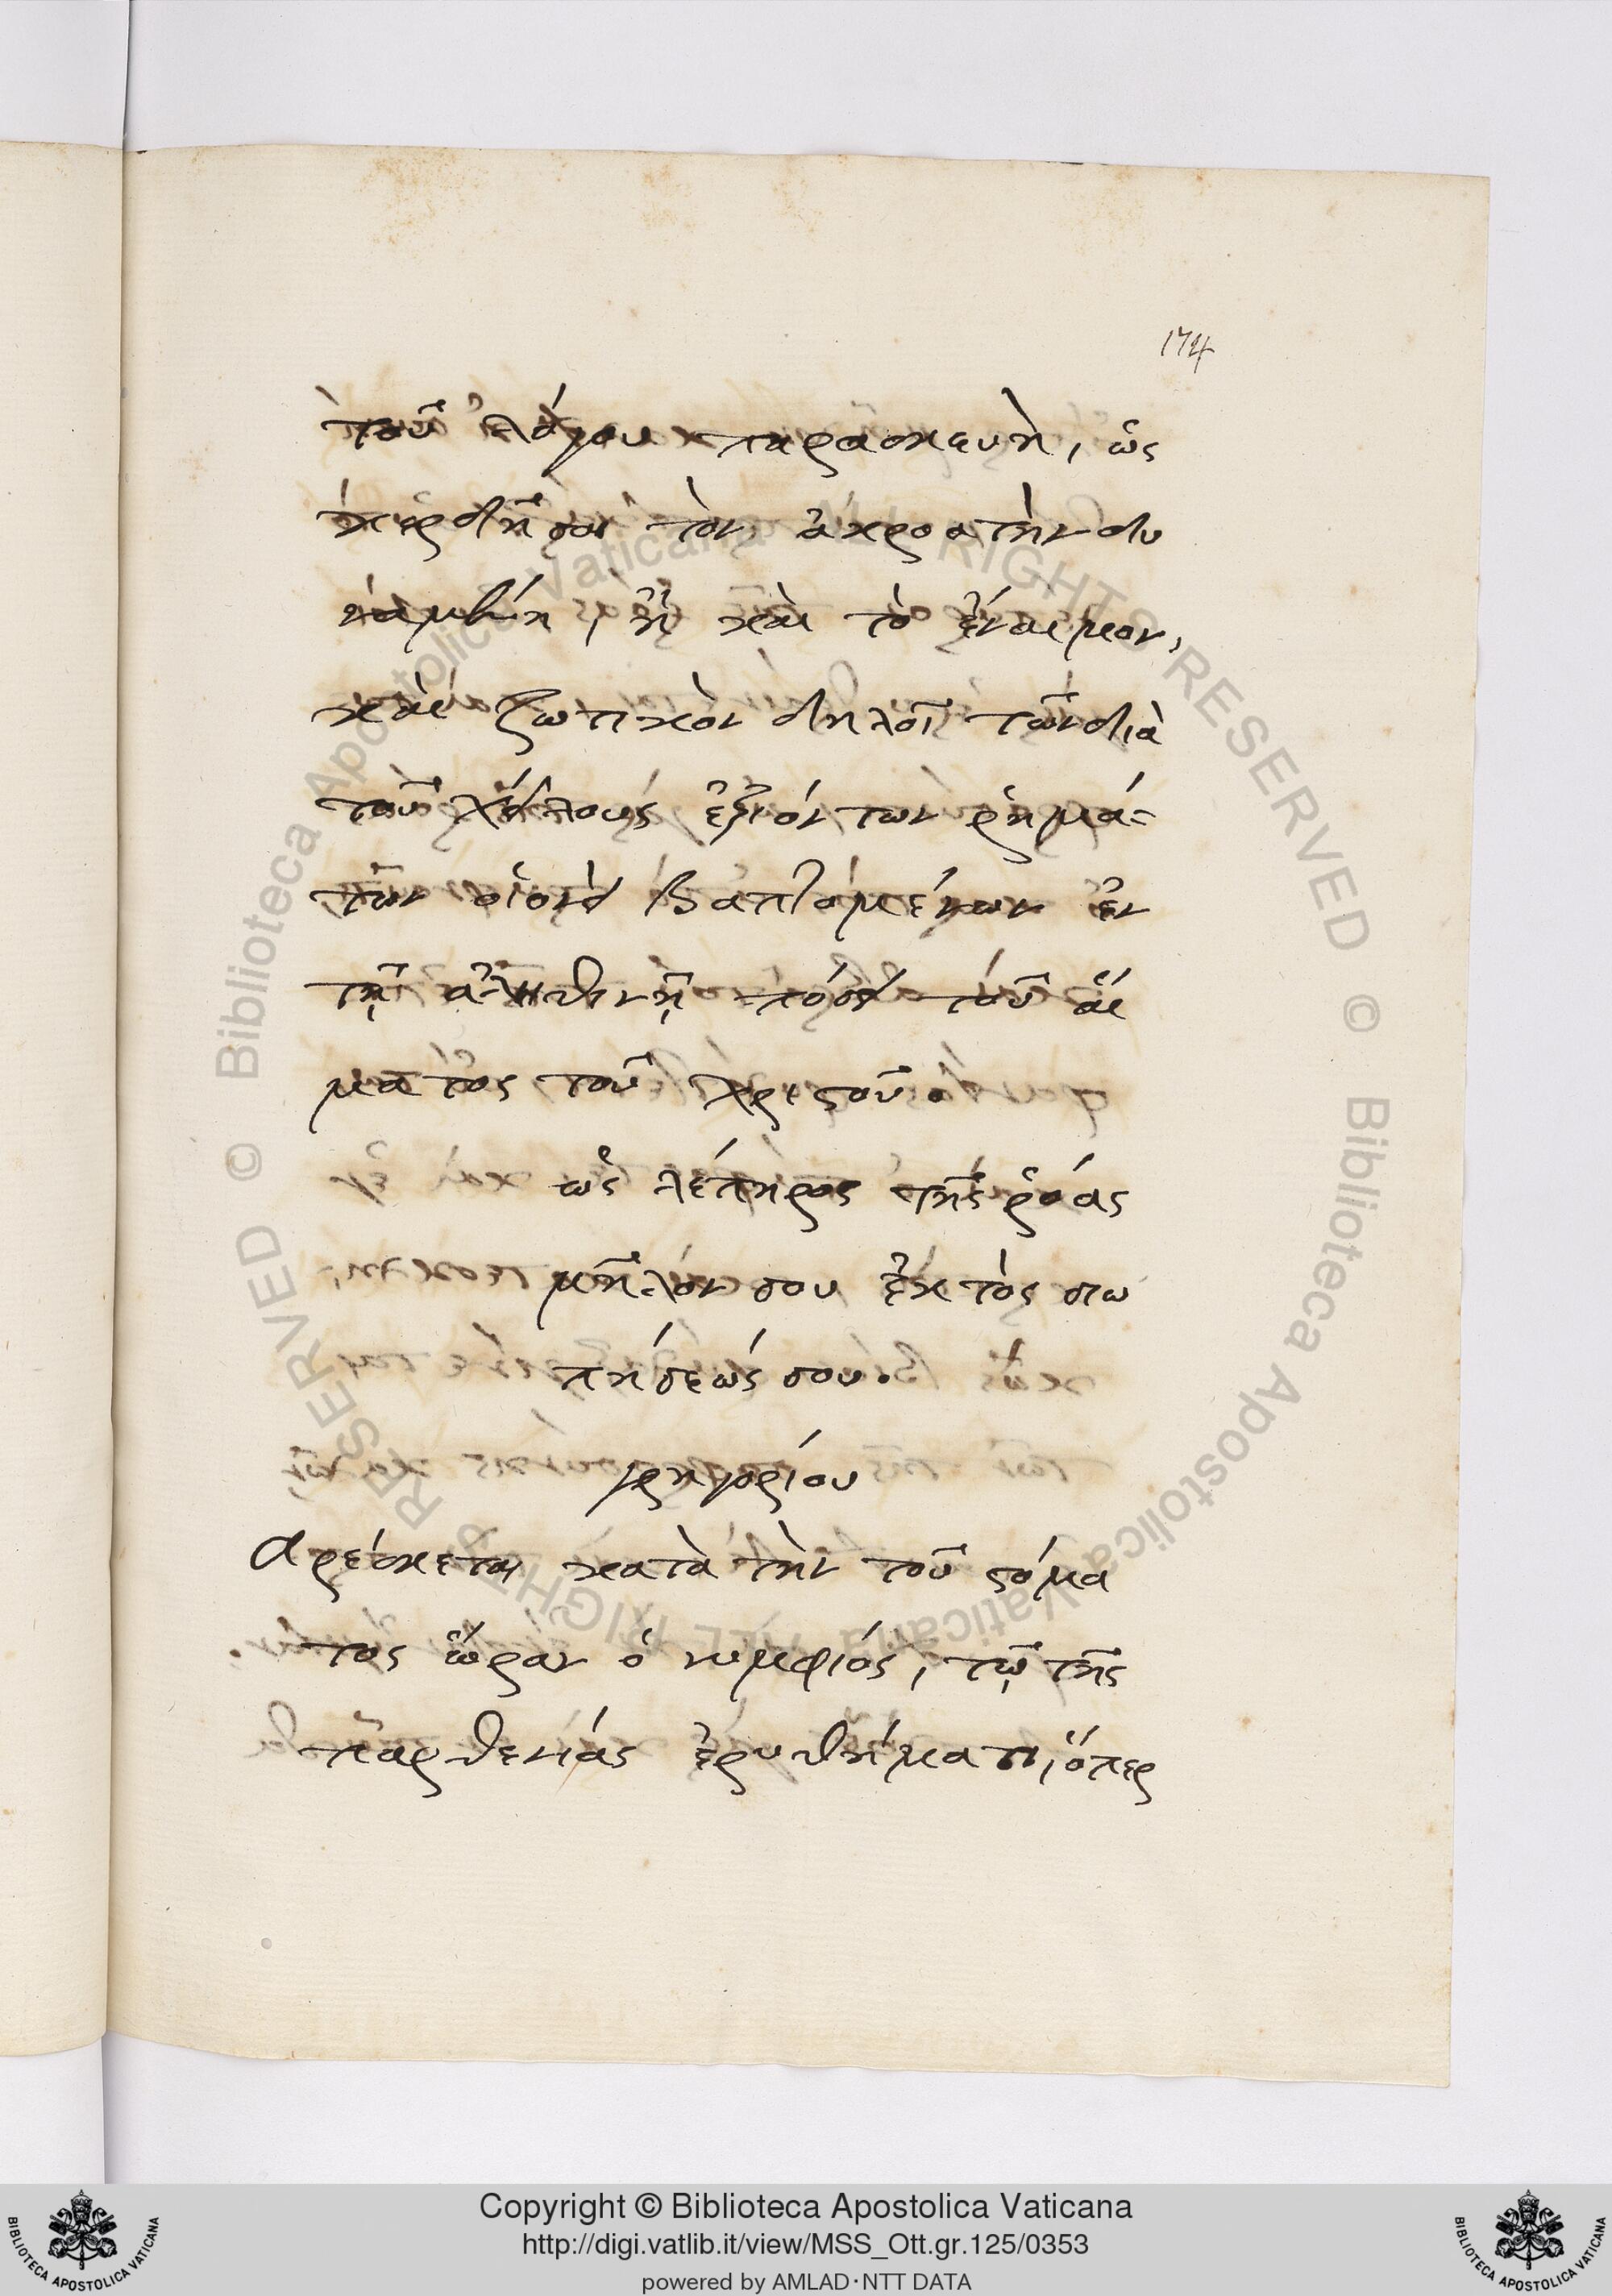 174
τοῦ λόγου παρασκευὴ, ὡς
κερδῆσαι τὸν ἀκροατὴν δυ
ναμένη, ἢ καὶ τὸ ἔναιμον,
καὶ ζωτικὸν δηλοῖ τῶν διὰ
τοῦ χείλους ἐξιόντων ῥημά-
των οἱονεὶ βαπτομένων ἐν
τῇ ἀληθινῇ πόσει τοῦ αἵ
ματος τοῦ χριστοῦ.
ὡς λέπυρος τῆς ῥόας
μῆλόν σου ἐκτὸς σιω
πήσεώς σου.
γρηγορίου
Αρέσκεται κατὰ τὴν τοῦ στόμα
τος ὥραν ὁ νυμφιός, τῷ τῆς
παρθενίας ἐρυθήματι, ὅπερ
© Biblioteca Apostolica Vaticana ALL RIGHTS RESERVED
© Biblioteca Apostolica Vaticana ALL RIGHTS RESERVED
BIBLIOTECA APOSTOLICA VATICANA
Copyright © Biblioteca Apostolica Vaticana
http://digi.vatlib.it/view/MSS_Ott.gr.125/0353
powered by AMLAD·NTT DATA
BIBLIOTECA APOSTOLICA VATICANA